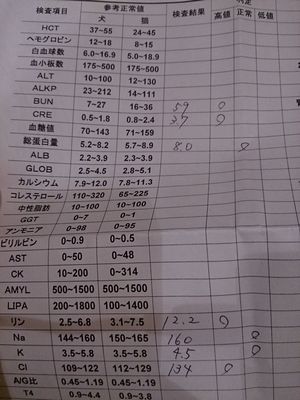 検査項目 参考正常値 検査結果 判定
犬 猫 高値 正常 低値
HCT 37~55 24~45
ヘモグロビン 12~18 8~15
白血球数 6.0~16.9 5.0~18.9
血小板数 175~500 175~500
ALT 10~100 12~130
ALKP 23~212 14~111
BUN 7~27 16~36 59 ○
CRE 0.5~1.8 0.8~2.4 3.7 ○
血糖値 70~143 71~159
総蛋白量 5.2~8.2 5.7~8.9 8.0 ○
ALB 2.2~3.9 2.3~3.9
GLOB 2.5~4.5 2.8~5.1
カルシウム 7.9~12.0 7.8~11.3
コレステロール 110~320 65~225
中性脂肪 10~100 10~100
GGT 0~7 0~1
アンモニア 0~98 0~95
ビリルビン 0~0.9 0~0.5
AST 0~50 0~48
CK 10~200 0~314
AMYL 500~1500 500~1500
LIPA 200~1800 100~1400
リン 2.5~6.8 3.1~7.5 12.2 ○
Na 144~160 150~165 160 ○
K 3.5~5.8 3.5~5.8 4.5 ○
Cl 109~122 112~129 134 ○
A/G比 0.45~1.19 0.45~1.19
T4 0.9~4.4 0.9~3.8